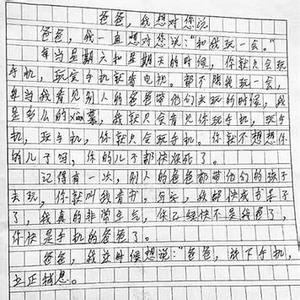 爸爸,我想对您说
爸爸,我一直想对您说:"和我玩一会。"
每当星期六和星期天的时候,你就只会玩
手机,玩会手机就看电视。都不陪我玩一会,
每当我看见别人的爸爸带他们去玩的时候,我
是多么的xian慕,我就只会看见你玩手机,玩手
机,玩手机,你就只会玩手机。你就不想想你
的儿子吗,你的儿子都快疯了。
记得有一次,别人的爸爸都带他们的孩子
去玩,你就叫我看书,写字,我都快成书呆子
了,我真的非常生气,你已经快不是我爸了,
你快是手机的爸爸了。
爸爸,我这时候想说:"爸爸,放下手机,
立正稍息。